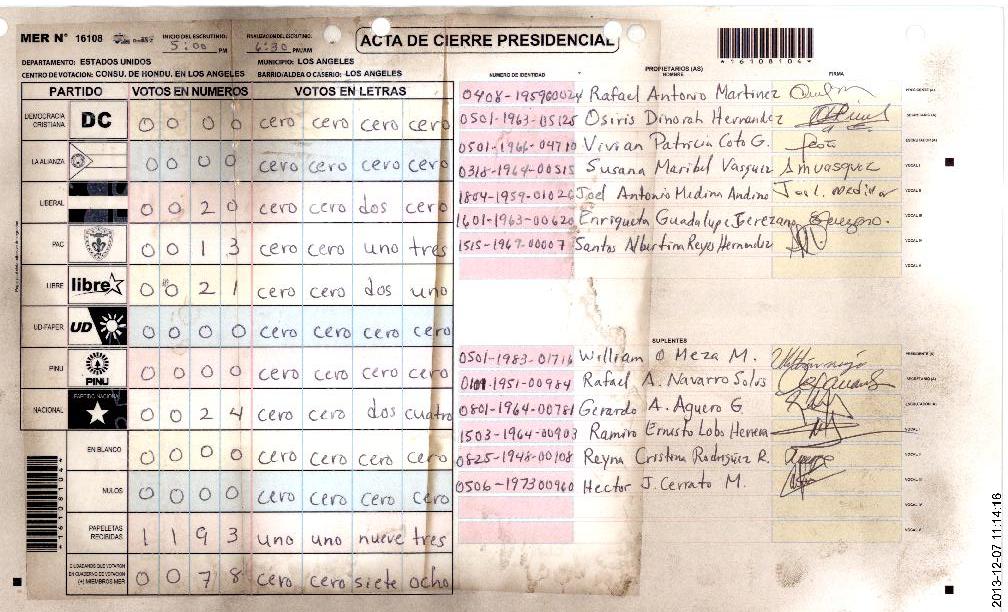 MER N° 16108 INICIO DEL ESCRUTINIO: 5:00 PM FINALIZACION DEL ESCRUTINIO: 6:30 PM/AM ACTA DE CIERRE PRESIDENCIAL
16108104
DEPARTAMENTO: ESTADOS UNIDOS MUNICIPIO: LOS ANGELES
CENTRO DE VOTACION: CONSU. DE HONDU. EN LOS ANGELES BARRIO/ALDEA O CASERIO: LOS ANGELES
PARTIDO VOTOS EN NUMEROS VOTOS EN LETRAS
DEMOCRACIA CRISTIANA DC 0 0 0 0 cero cero cero cero
LA ALIANZA 0 0 0 0 cero cero cero cero
LIBERAL 0 0 2 0 cero cero dos cero
PAC 0 0 1 3 cero cero uno tres
LIBRE libre 0 0 2 1 cero cero dos uno
UD-FAPER UD 0 0 0 0 cero cero cero cero
PINU PINU 0 0 0 0 cero cero cero cero
NACIONAL PARTIDO NACIONAL 0 0 2 4 cero cero dos cuatro
EN BLANCO 0 0 0 0 cero cero cero cero
NULOS 0 0 0 0 cero cero cero cero
PAPELETAS RECIBIDAS 1 1 9 3 uno uno nueve tres
CIUDADANOS QUE VOTARON EN CUADERNO DE VOTACION (+) MIEMBROS MER 0 0 7 8 cero cero siete ocho
PROPIETARIOS (AS)
NUMERO DE IDENTIDAD NOMBRE FIRMA
0408-195900024 Rafael Antonio Martinez PRESIDENTE (A)
0501-1963-05125 Osiris Dinorah Hernandez SECRETARIO (A)
0501-1966-04710 Vivian Patricia Coto G. ESCRUTADOR (A)
0318-1964-00515 Susana Maribel Vasquez Smvasquez VOCAL I
1804-1959-01026 Joel Antonio Medina Andino Joel. medina VOCAL II
1601-1963-00620 Enriqueta Guadalupe Cerezano VOCAL III
1515-1967-00007 Santos Albertina Reyes Hernandez VOCAL IV
VOCAL V
SUPLENTES
0501-1983-01716 William O Meza M. PRESIDENTE (A)
0101-1951-00984 Rafael A. Navarro Solos SECRETARIO (A)
0801-1964-00781 Gerardo A. Aguero G ESCRUTADOR (A)
1503-1964-00903 Ramiro Ernesto Lobo Herrera VOCAL I
0825-1948-00108 Reyna Cristina Rodriguez R. VOCAL II
0506-197300960 Hector J. Cerrato M. VOCAL III
VOCAL IV
VOCAL V
2013-12-07 11:14:16